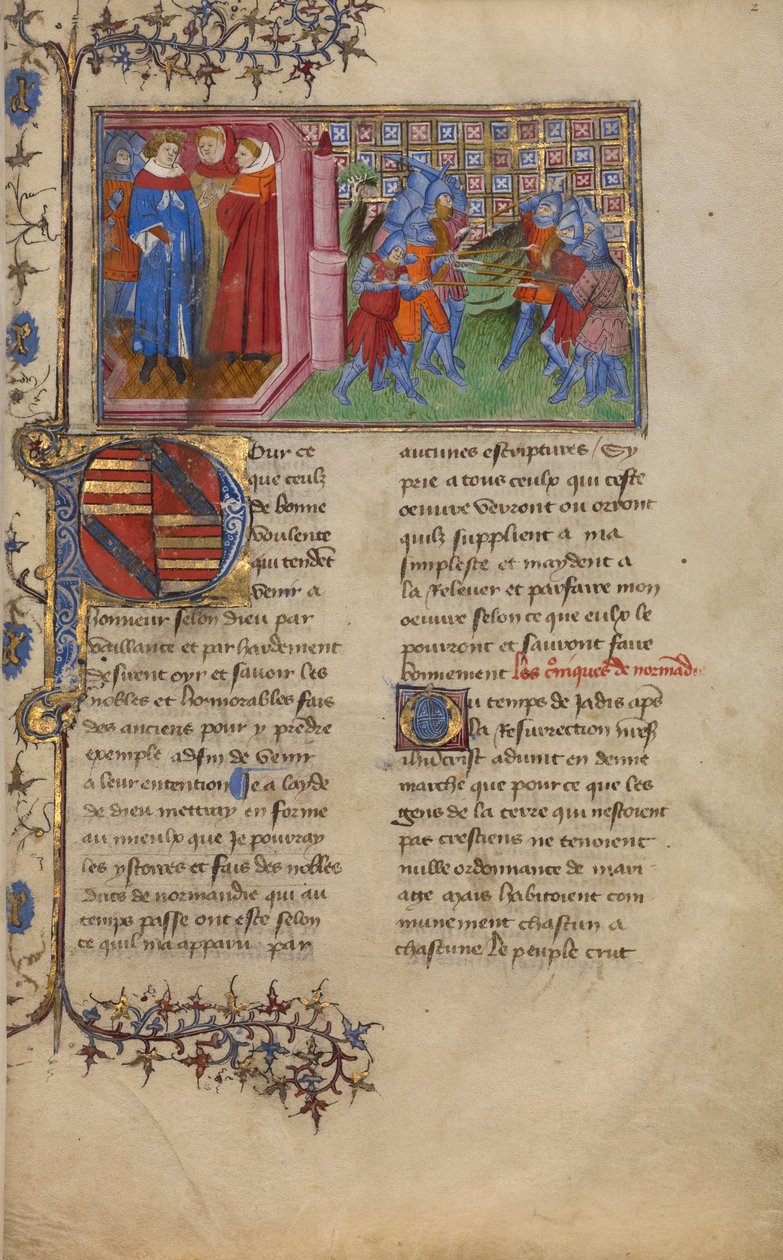 2
Pour ce
que ceulz
de bonne
voulente
qui tendēt
venir a
honneur selon dieu par
vaillance et par hardement
desirent oyr et savoir les
nobles et honnorables fais
des anciens pour y prēdre
exemple adfin de venir
a leur entention Je a layde
de dieu mettray en forme
au mieulx que Je pourray
les ystoires et fais des nobles
ducs de normandie qui au
temps passe ont este selon
ce quil ma apparu par
aucunes escriptures / Sy
prie a tous ceulx qui ceste
oeuvre verront ou orront
quilz supplient a ma
simpleste et maydent a
la Relever et parfaire mon
oeuvre selon ce que eulx le
pourront et sauront faire
bonnement Les cōniques de normād
Ou temps de Jadis aps
la Resurrection nr̄e s̄
ihūcrist advint en denne
marche que pour ce que les
gens de la terre qui nestoient
pas crestiens ne tenoient
nulle ordonnance de mari
age Mais habitoient com
munement chascun a
chascune Le peuple crut